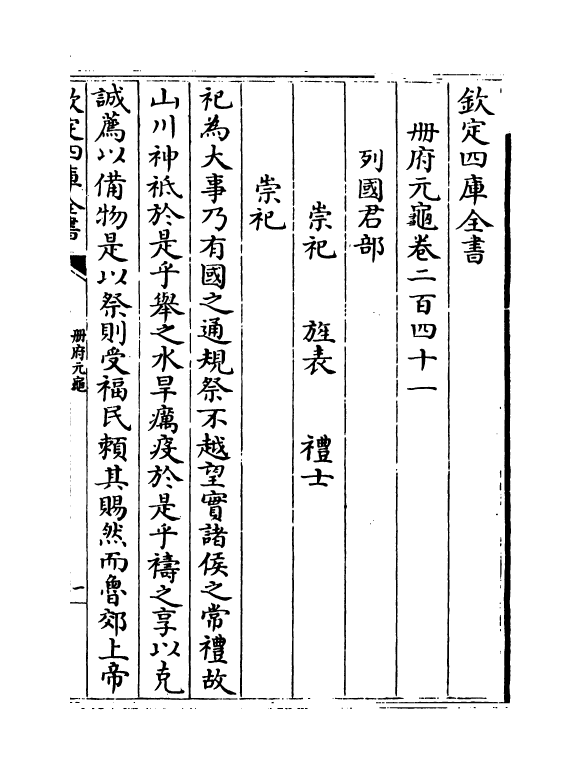 欽定四庫全書
册府元龜卷二百四十一
列國君部
崇祀 旌表 禮士
崇祀
祀為大事乃有國之通規祭不越望實諸侯之常禮故
山川神祇於是乎舉之水旱癘疫於是乎禱之享以克
誠薦以備物是以祭則受福民賴其賜然而魯郊上帝
欽定四庫全書
册府元龜
一